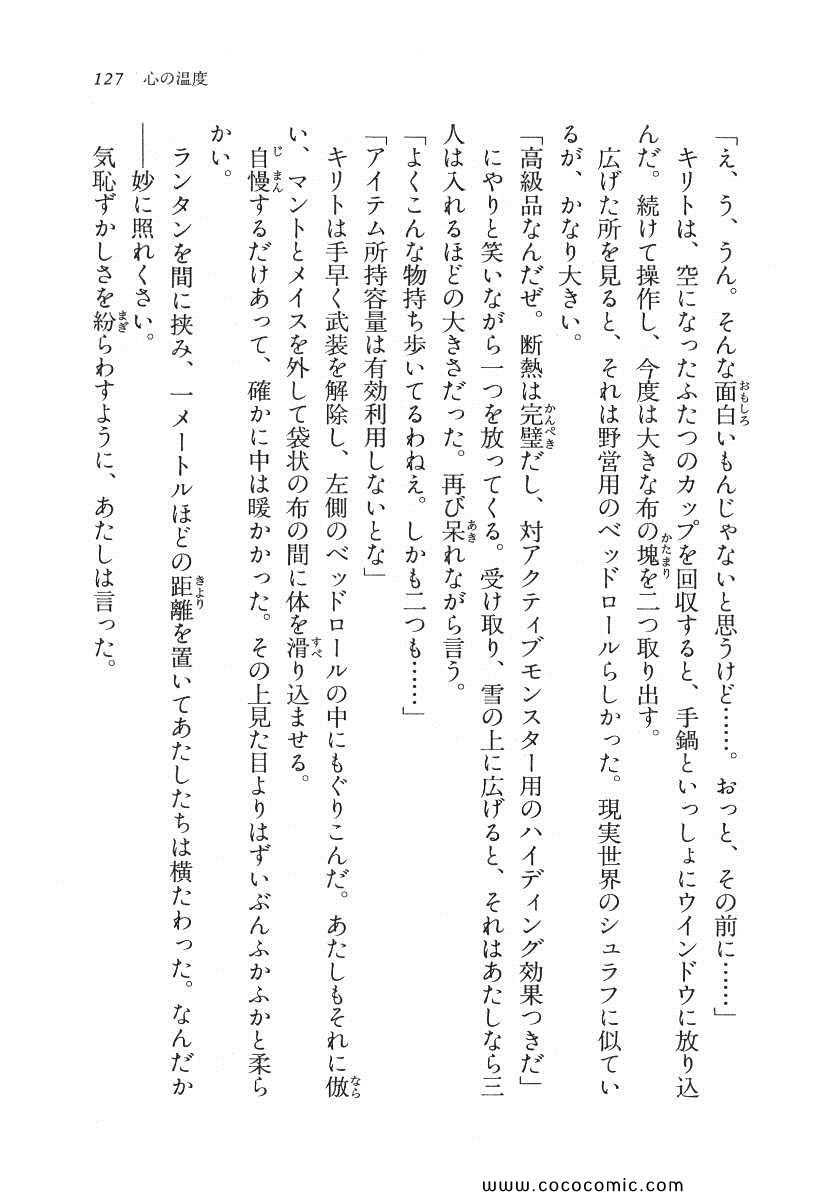 127 心の温度
「え、う、うん。そんな面白いもんじゃないと思うけど……。おっと、その前に……」
キリトは、空になったふたつのカップを回収すると、手鍋といっしょにウインドウに放り込
んだ。続けて操作し、今度は大きな布の塊を二つ取り出す。
広げた所を見ると、それは野営用のベッドロールらしかった。現実世界のシュラフに似てい
るが、かなり大きい。
「高級品なんだぜ。断熱は完璧だし、対アクティブモンスター用のハイディング効果つきだ」
にやりと笑いながら一つを放ってくる。受け取り、雪の上に広げると、それはあたしなら三
人は入れるほどの大きさだった。再び呆れながら言う。
「よくこんな物持ち歩いてるわねえ。しかも二つも……」
「アイテム所持容量は有効利用しないとな」
キリトは手早く武装を解除し、左側のベッドロールの中にもぐりこんだ。あたしもそれに倣
い、マントとメイスを外して袋状の布の間に体を滑り込ませる。
自慢するだけあって、確かに中は暖かかった。その上見た目よりはずいぶんふかふかと柔ら
かい。
ランタンを間に挟み、一メートルほどの距離を置いてあたしたちは横たわった。なんだか
――妙に照れくさい。
気恥ずかしさを紛らわすように、あたしは言った。
www.cococomic.com